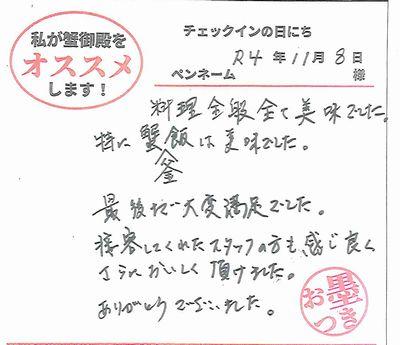 私が蟹御殿を
オススメ
します！
チェックインの日にち
R4 年 11月 8 日
ペンネーム 様
料理全般全て美味でした。
特に蟹釜飯は美味でした。
最後まで大変満足でした。
接客してくれたスタッフの方も感じ良く
さらにおいしく頂けました。
ありがとうございました。
お墨つき